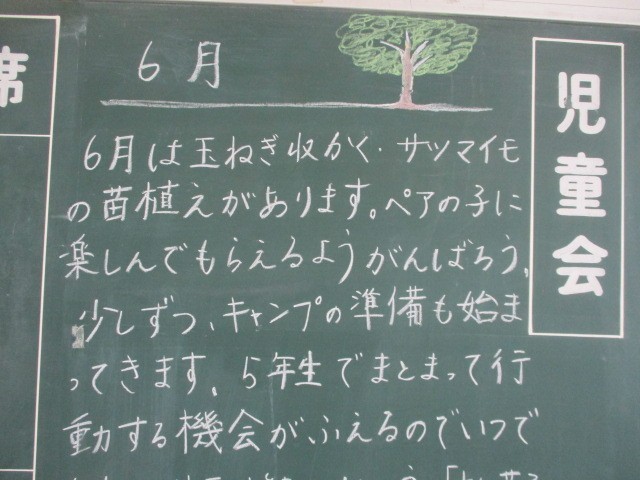 6月
6月は玉ねぎ収かく・サツマイモ
の苗植えがあります。ペアの子に
楽しんでもらえるようがんばろう。
少しずつ、キャンプの準備も始ま
ってきます。5年生でまとまって行
動する機会がふえるのでいつで
児童会
席